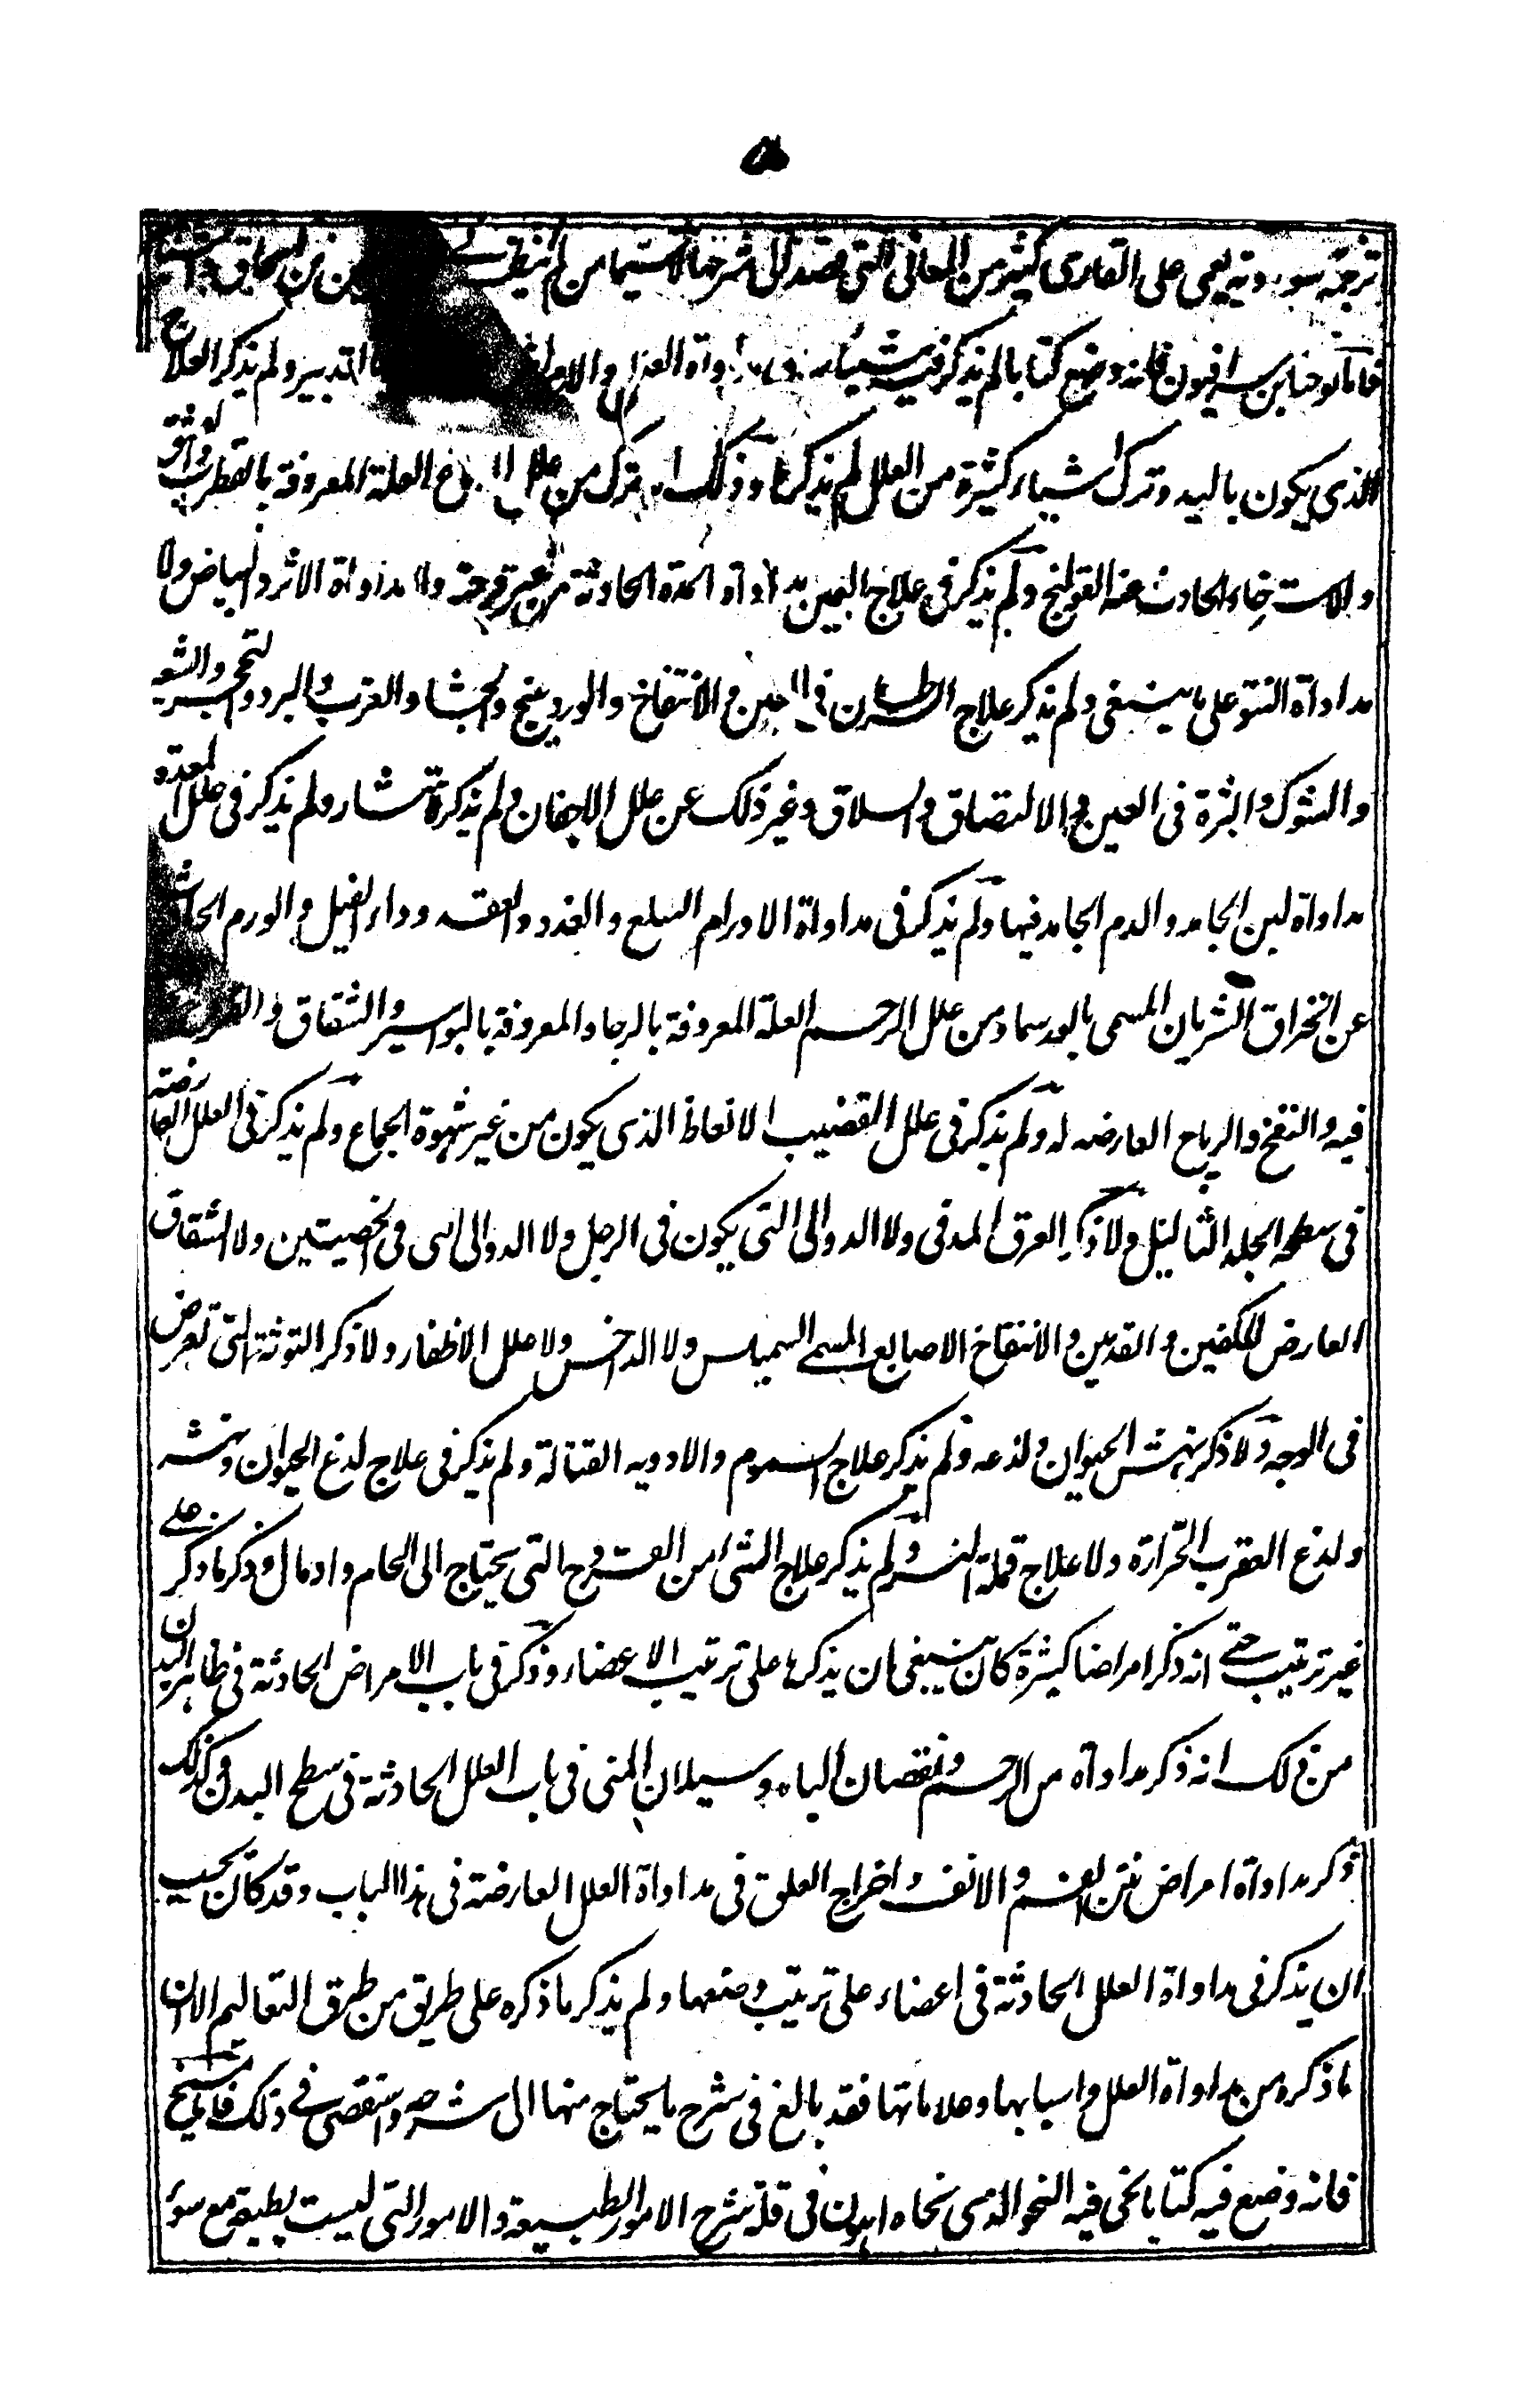 ٥
ترجمة سو ردية يعمى على القارى كثير من المعانى التى قصد الى شرحها لاسيما من لم ينظر فى حنين بن اسحاق
فاما يوحنا بن سرافيون فانه وضع كتابا لم يذكر فيه شيئا مداواة العلل والامراض التدبير ولم يذكر العلاج
الذى يكون باليد وترك اشياء كثيرة من العلل لم يذكرها وذلك انه ترك من علل الدماغ العلة المعروفة بالقطرب
والاسترخاء الحادث عنه القولنج ولم يذكر فى علاج العين مداواة المدة الحادثة من غير قرحة ولا مداواة الاثر والبياض ولا
مداواة النتو على ما ينبغى ولم يذكر علاج السرطان فى العين والانتفاخ والوردينج والجشا والغرب والبرد والتحجر والشعيرة
والشوك والبثرة فى العين والالتصاق والسلاق وغير ذلك عن علل الاجفان ولم يذكر انتشار ولم يذكر فى علل المعدة
مداواة لبن الجامد والدم الجامد فيها ولم يذكر فى مداواة الاورام السلع والغدد والعقد وداء الفيل والورم الحادث
عن انخراق الشريان المسمى بالورسما ومن علل الرحم العلة المعروفة بالرجا والمعروفة بالبواسير والشقاق
فيه والنفخ والرياح العارضه له ولم يذكر فى علل القضيب الانعاظ الذى يكون من غير شهوة الجماع ولم يذكر فى العلل العارضة
فى سطح الجلد الثاليل ولا ذكر العرق المدنى ولا الدوالى التى يكون فى الرجل ولا الدوالى التى فى الخصيتين ولا الشقاق
العارض للكفين والقدمين والانتفاخ الاصابع المسمى ولا الداخس ولا علل الاظفار ولا ذكر التوثة التى تعرض
فى الوجه ولا ذكر نهش الحيوان ولذعه ولم يذكر علاج السموم والادويه القتالة ولم يذكر فى علاج لدغ الحيوان ونهشه
ولدغ العقرب الجرارة ولا علاج قملة النسر ولم يذكر علاج شى من القروح التى يحتاج الى الحام وادمال وذكر ما ذكر على
غير ترتيب حتى انه ذكر امراضا كثيرة كان ينبغى ان يذكرها على ترتيب الاعضاء وذكر فى باب الامراض الحادثة فى ظاهر البدن
من ذلك انه ذكر مداواة الرحم ونقصان الباه وسيلان المنى فى باب العلل الحادثة فى سطح البدن وكذلك
ذكر مداواة امراض نتن الفم والانف واخراج العلق فى مداواة العلل العارضة فى هذا الباب وقد كان يجب
ان يذكر فى مداواة العلل الحادثة فى اعضاء على ترتيب وضعها ولم يذكر ما ذكره على طريق من طرق التعاليم الا ان
ما ذكره من مداواة العلل واسبابها وعلاماتها فقد بالغ فى شرح ما يحتاج منها الى شرحه واستقصى فى ذلك فاما مسيح
فانه وضع فيه كتابا نحى فيه النحو الذى نحاه اهرن فى قلة شرح الامور الطبيعة والامور التى ليست بطبيعة مع سوء